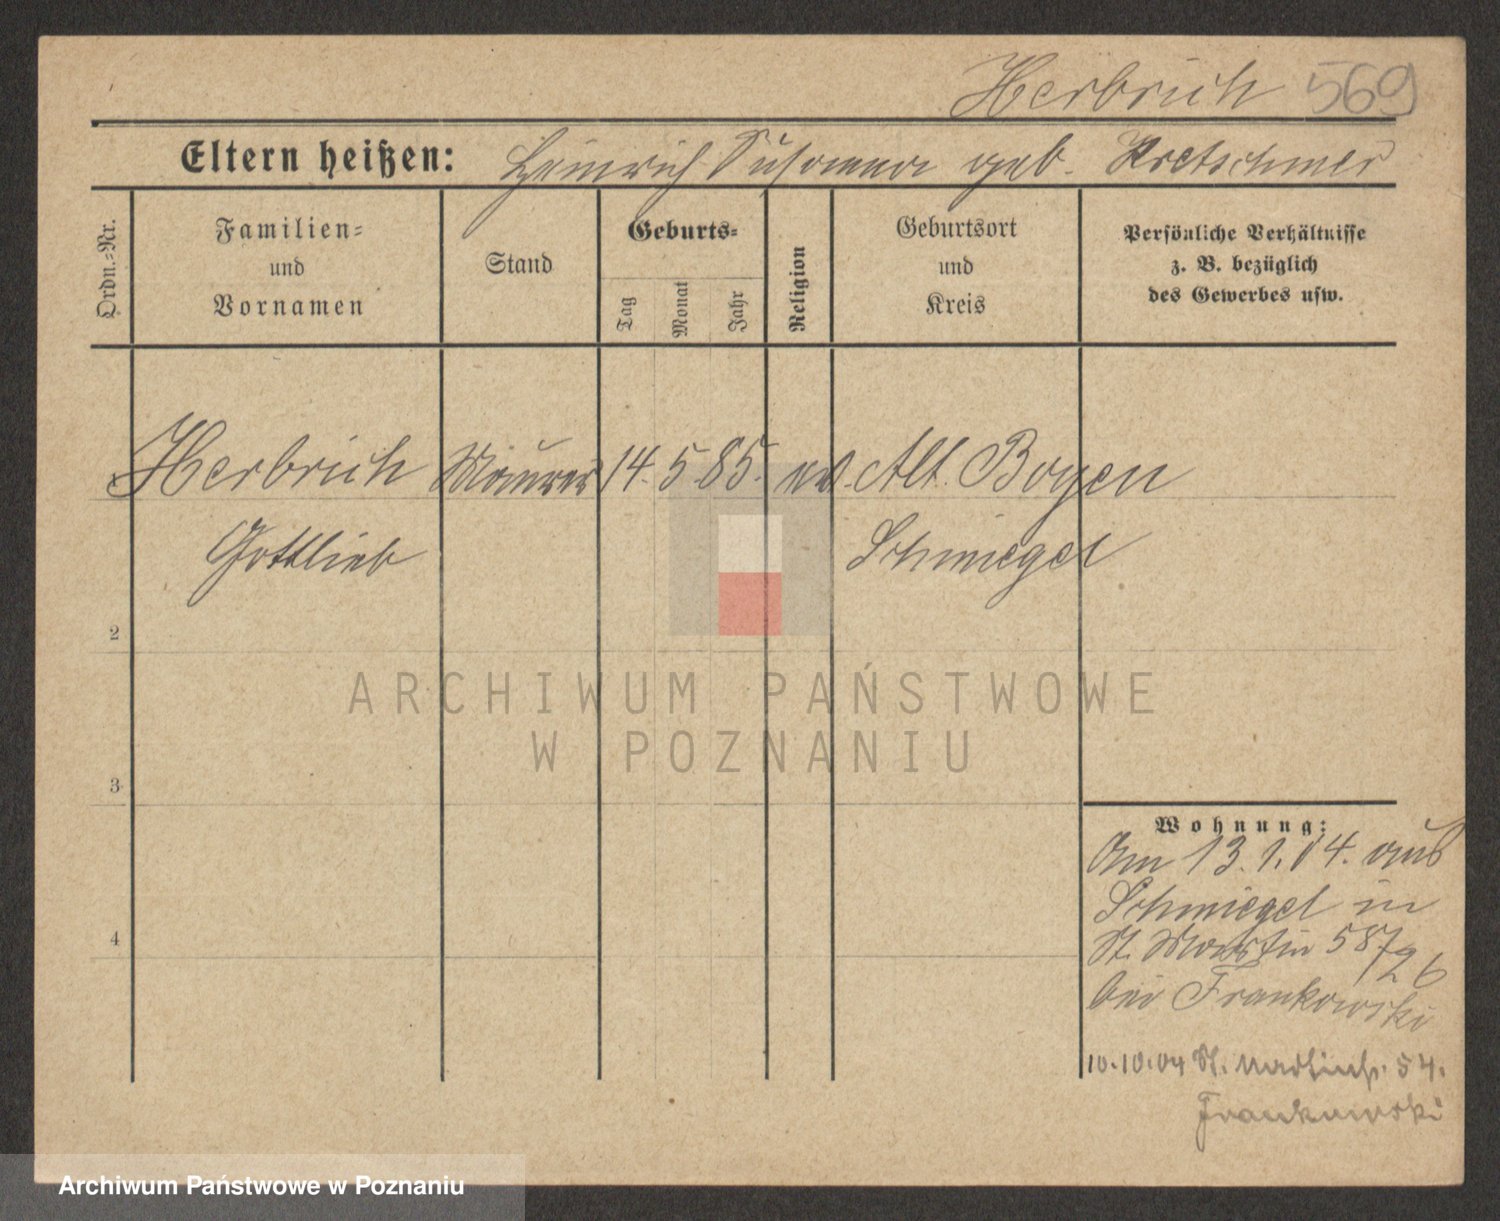 Herbrich 569
Eltern heißen: Heinrich Susanna geb. Kretschmer
Ordn.-Nr.
Familien-
und
Vornamen
Stand
Geburts-
Tag
Monat
Jahr
Religion
Geburtsort
und
Kreis
Persönliche Verhältnisse
z. B. bezüglich
des Gewerbes usw.
Herbrich Maurer 14. 5. 85. ev. Alt. Boyen
Gottlieb Schmiegel
2
3
4
Wohnung:
Am 13.1.04. aus
Schmiegel in
St. Martin 58
bei Frankowski
10.10.04 St. Martinstr. 54.
Frankowski
ARCHIWUM PAŃSTWOWE
W POZNANIU
Archiwum Państwowe w Poznaniu